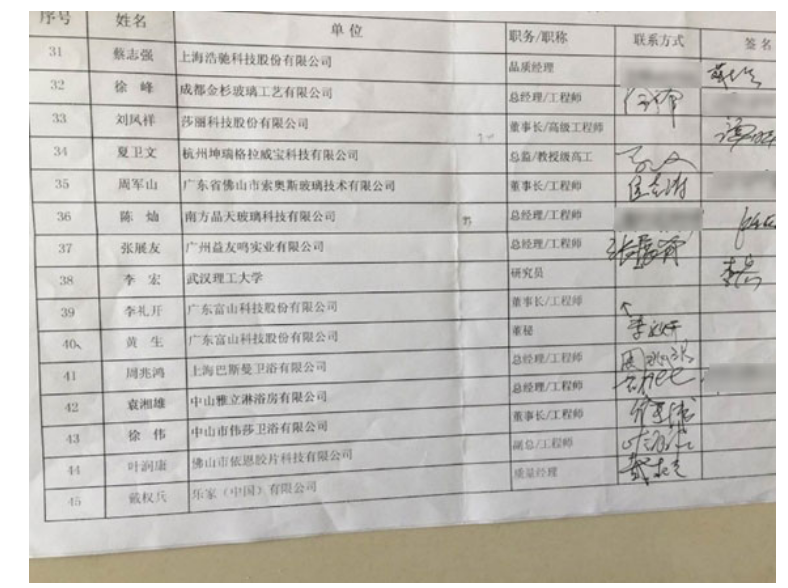 序号 姓名 单位 职务/职称 联系方式 签名
31 蔡志强 上海浩驰科技股份有限公司 品质经理
32 徐 峰 成都金杉玻璃工艺有限公司 总经理/工程师
33 刘凤祥 莎丽科技股份有限公司 董事长/高级工程师
34 夏卫文 杭州坤瑞格拉威宝科技有限公司 总监/教授级高工
35 周军山 广东省佛山市索奥斯玻璃技术有限公司 董事长/工程师
36 陈 灿 南方晶天玻璃科技有限公司 总经理/工程师
37 张展友 广州益友鸣实业有限公司 总经理/工程师
38 李 宏 武汉理工大学 研究员 李宏
39 李礼开 广东富山科技股份有限公司 董事长/工程师
40 黄 生 广东富山科技股份有限公司 董秘
41 周兆鸿 上海巴斯曼卫浴有限公司 总经理/工程师
42 袁湘雄 中山雅立淋浴房有限公司 总经理/工程师
43 徐 伟 中山市伟莎卫浴有限公司 董事长/工程师
44 叶润康 佛山市依恩胶片科技有限公司 副总/工程师
45 戴权兵 乐家（中国）有限公司 质量经理